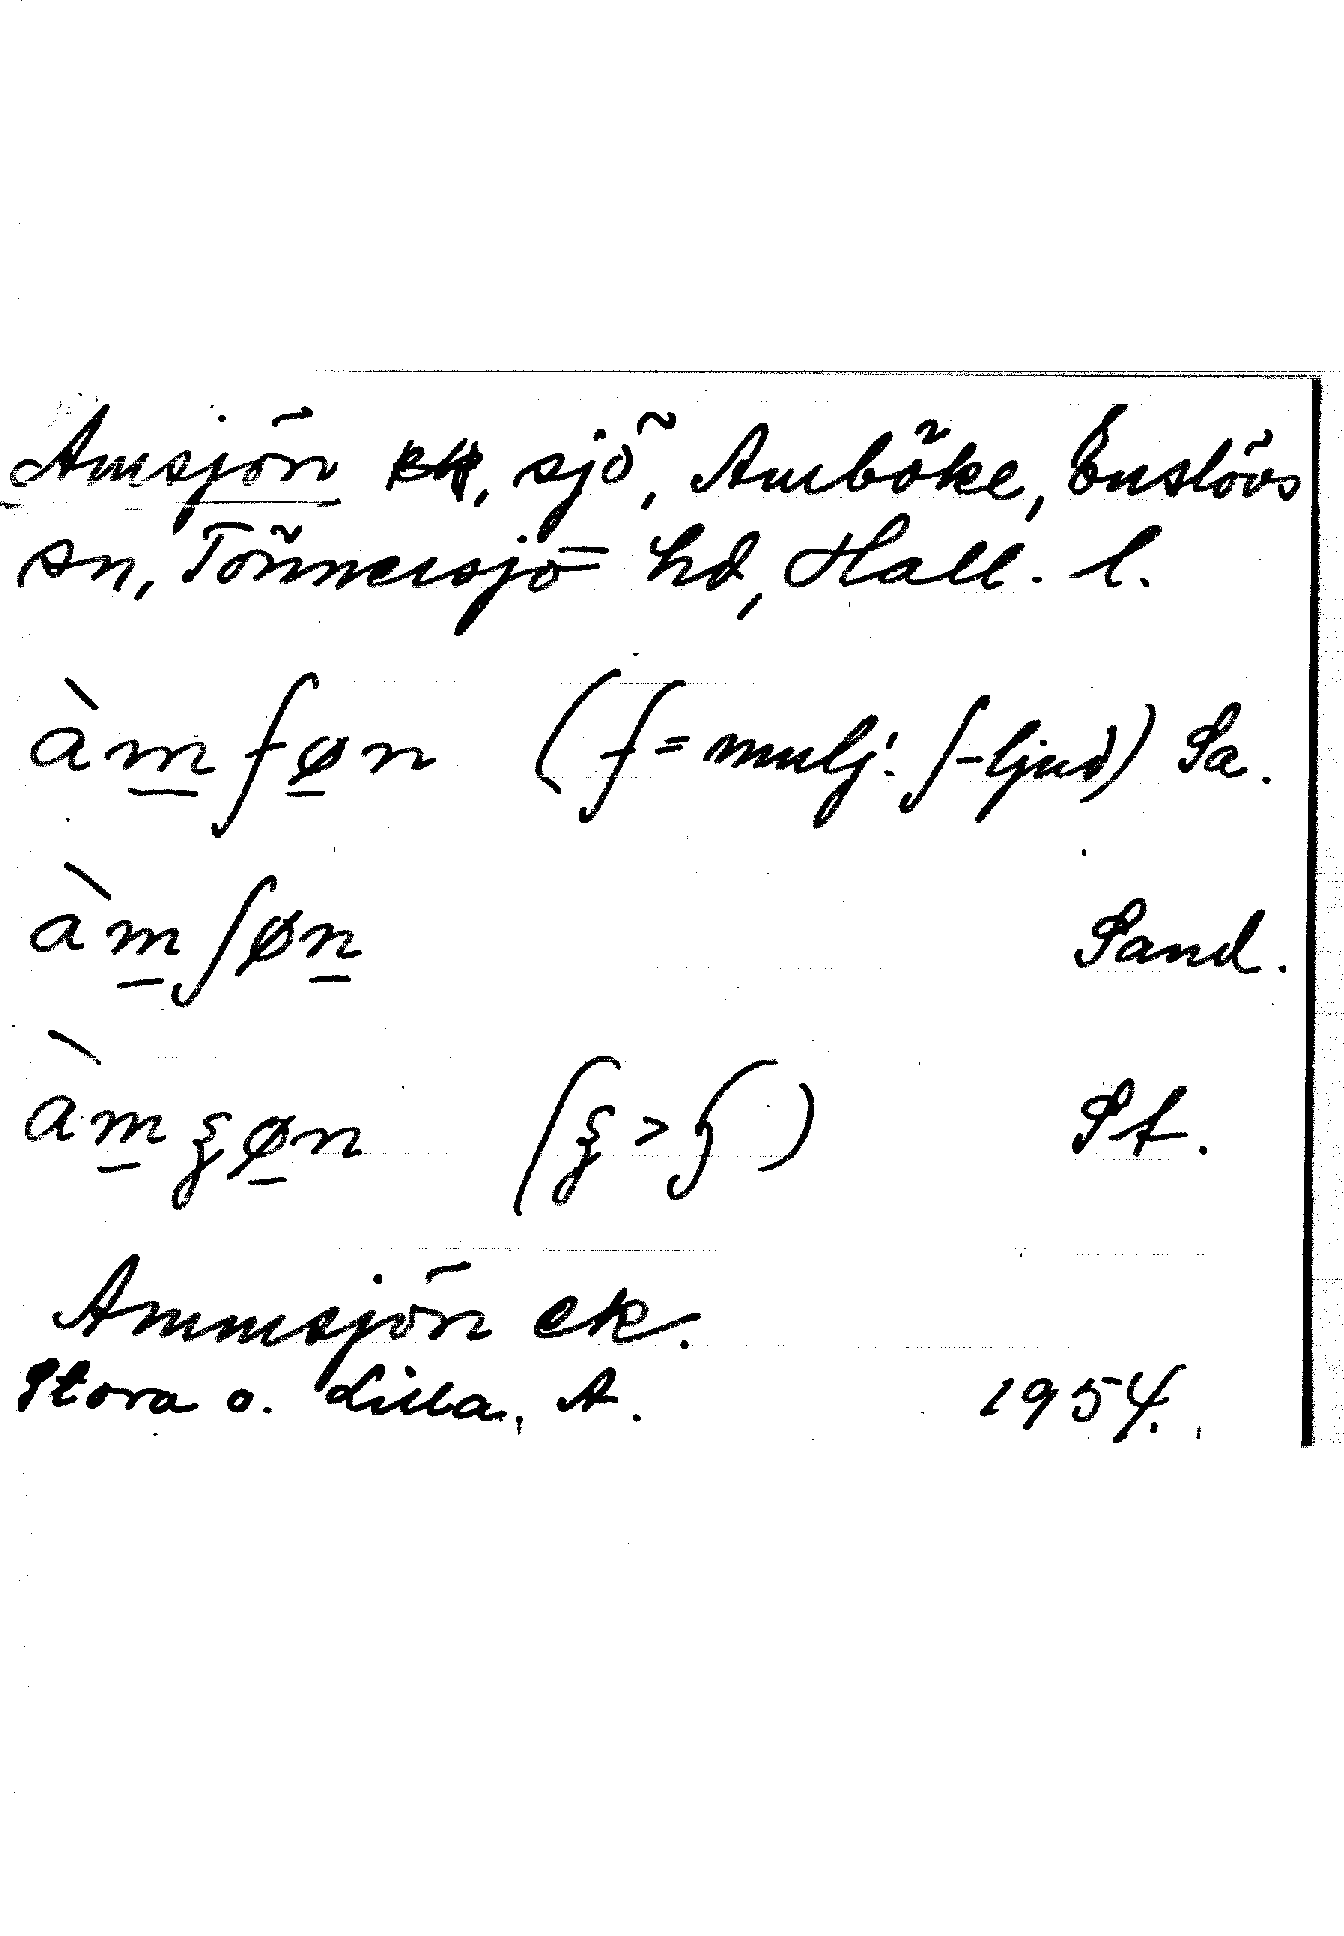 Amsjön, sjö, Amböke, Enslövs
sn, Tönnersjö hd, Hall. l.
àm̲ʃø̲n (ʃ = mulj. ʃ-ljud) Sa.
àm̲ʃøn̲ Sand.
àm̲ø̲n St.
Ammsjön ek.
Stora o. Lilla, A. 1954.